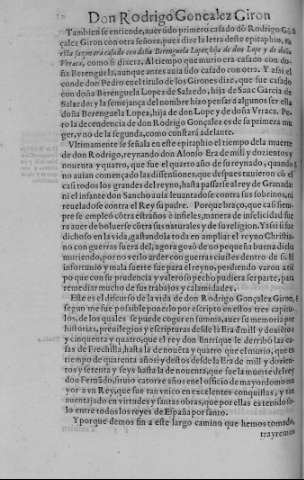 Don Rodrigo Gonçalez Giron
Tambien se entiende, auer sido primero casado dõ Rodrigo Gõ
çalez Giron con otra señora, pues dize la letra deste epitaphio, en
esta sa primera casado con doña Berenguela Lopez, hija de don Lope y de doña
Veraca, como si dixera. Al tiempo que murio era casado con do-
ña Berenguela, aunque antes auia sido casado con otra. Y assi el
conde don Pedro en el titulo de los Girones dize, que fue casado
con doña Berenguela Lopez de Salzedo, hija de Saac Garcia de
Salzedo: y la semejança del nombre hizo pensar a algunos ser ella
doña Berenguela Lopez, hija de don Lope y de doña Veraca. Pe-
ro la decendencia de don Rodrigo Gonçalez es de su primera mu
ger, y no de la segunda, como constara adelante.
Vltimamente se señala en este epitaphio el tiempo de la muerte
de don Rodrigo, reynando don Alonso Era de mil y dozientos y
nouenta y quatro, que fue el quarto año de su reynado, quando
no auian començado las dissensiones, que despues tauieron cõ el
casi todos los grandes del reyno, hasta passarse al rey de Granada:
ni el infante don Sancho auia leuantadose contra sus sobrinos, ni
reueladose contra el Rey su padre. Porque braço, que casi siem-
pre se empleò cõtra estraños è infieles, manera de infelicidad fue
ra auer de boluerse cõtra sus naturales y de su religion. Y assi si fue
dichoso en la vida, gastandola toda en ampliar el reyno Christia-
no con guerras fuera del, agora gozò de no pequeña buena dicha
muriendo, por no verlo arder con guerras ciuiles dentro de si. El
infortunio y mala suerte fue para el reyno, perdiendo varon a tiẽ
po que con su prudencia y valeroso pecho pudiera ser parte, para
remediar mucho de sus trabajos y calamidades.
Este es el discurso de la vida de don Rodrigo Gonçalez Giron,
segun me fue possible ponerlo por escripto en estos tres capitu-
los, de los quales se puede coger en somma, auer se memoria por
historias, preuilegios y escripturas desde la Era de mill y dozientos
y cinquenta y quatro, que el rey don Enrrique le derribò las ca-
sas de Frechilla, hasta la de nouẽta y quatro que el murio, que es
tiempo de quarenta años: y destos desde la Era de mill y dozien-
tos y setenta y seys hasta la de nouenta, que fue la muerte del rey
don Fernãdo, siruio catorze años en el officio de mayordomo ma
yor a vn Rey, que fue tan vnico en excelentes conquistas, y tan
auentajado en virtudes y santas obras, que por ellas es tenido so-
lo entre todos los reyes de España por santo.
Y porque demos fin a este largo camino que hemos tomado,
trayremos